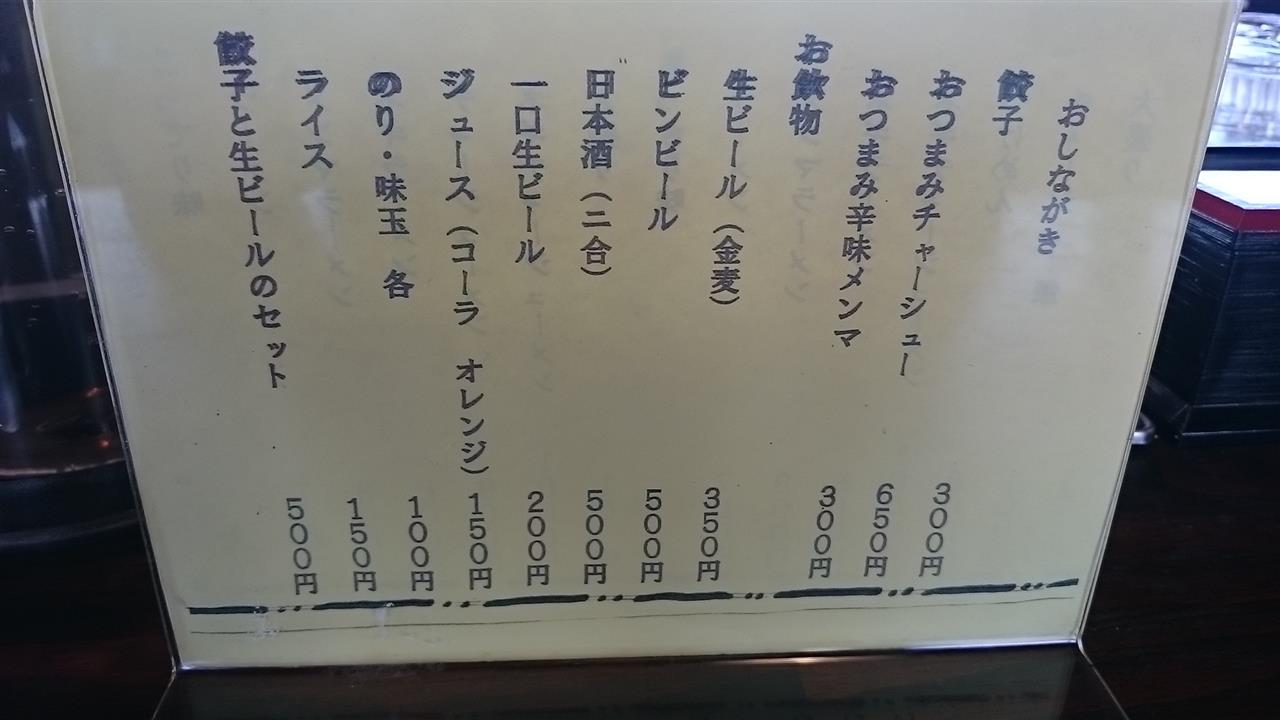 おしながき
餃子 300円
おつまみチャーシュー 650円
おつまみ辛味メンマ 300円
お飲物
生ビール(金麦) 350円
ビンビール 500円
日本酒(二合) 500円
一口生ビール 200円
ジュース(コーラ オレンジ) 150円
のり・味玉 各 100円
ライス 150円
餃子と生ビールのセット 500円